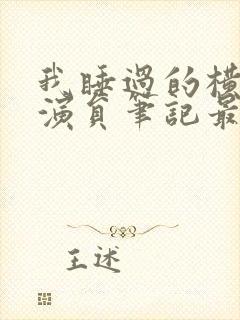 我睡过的横
演員筆記最
王述